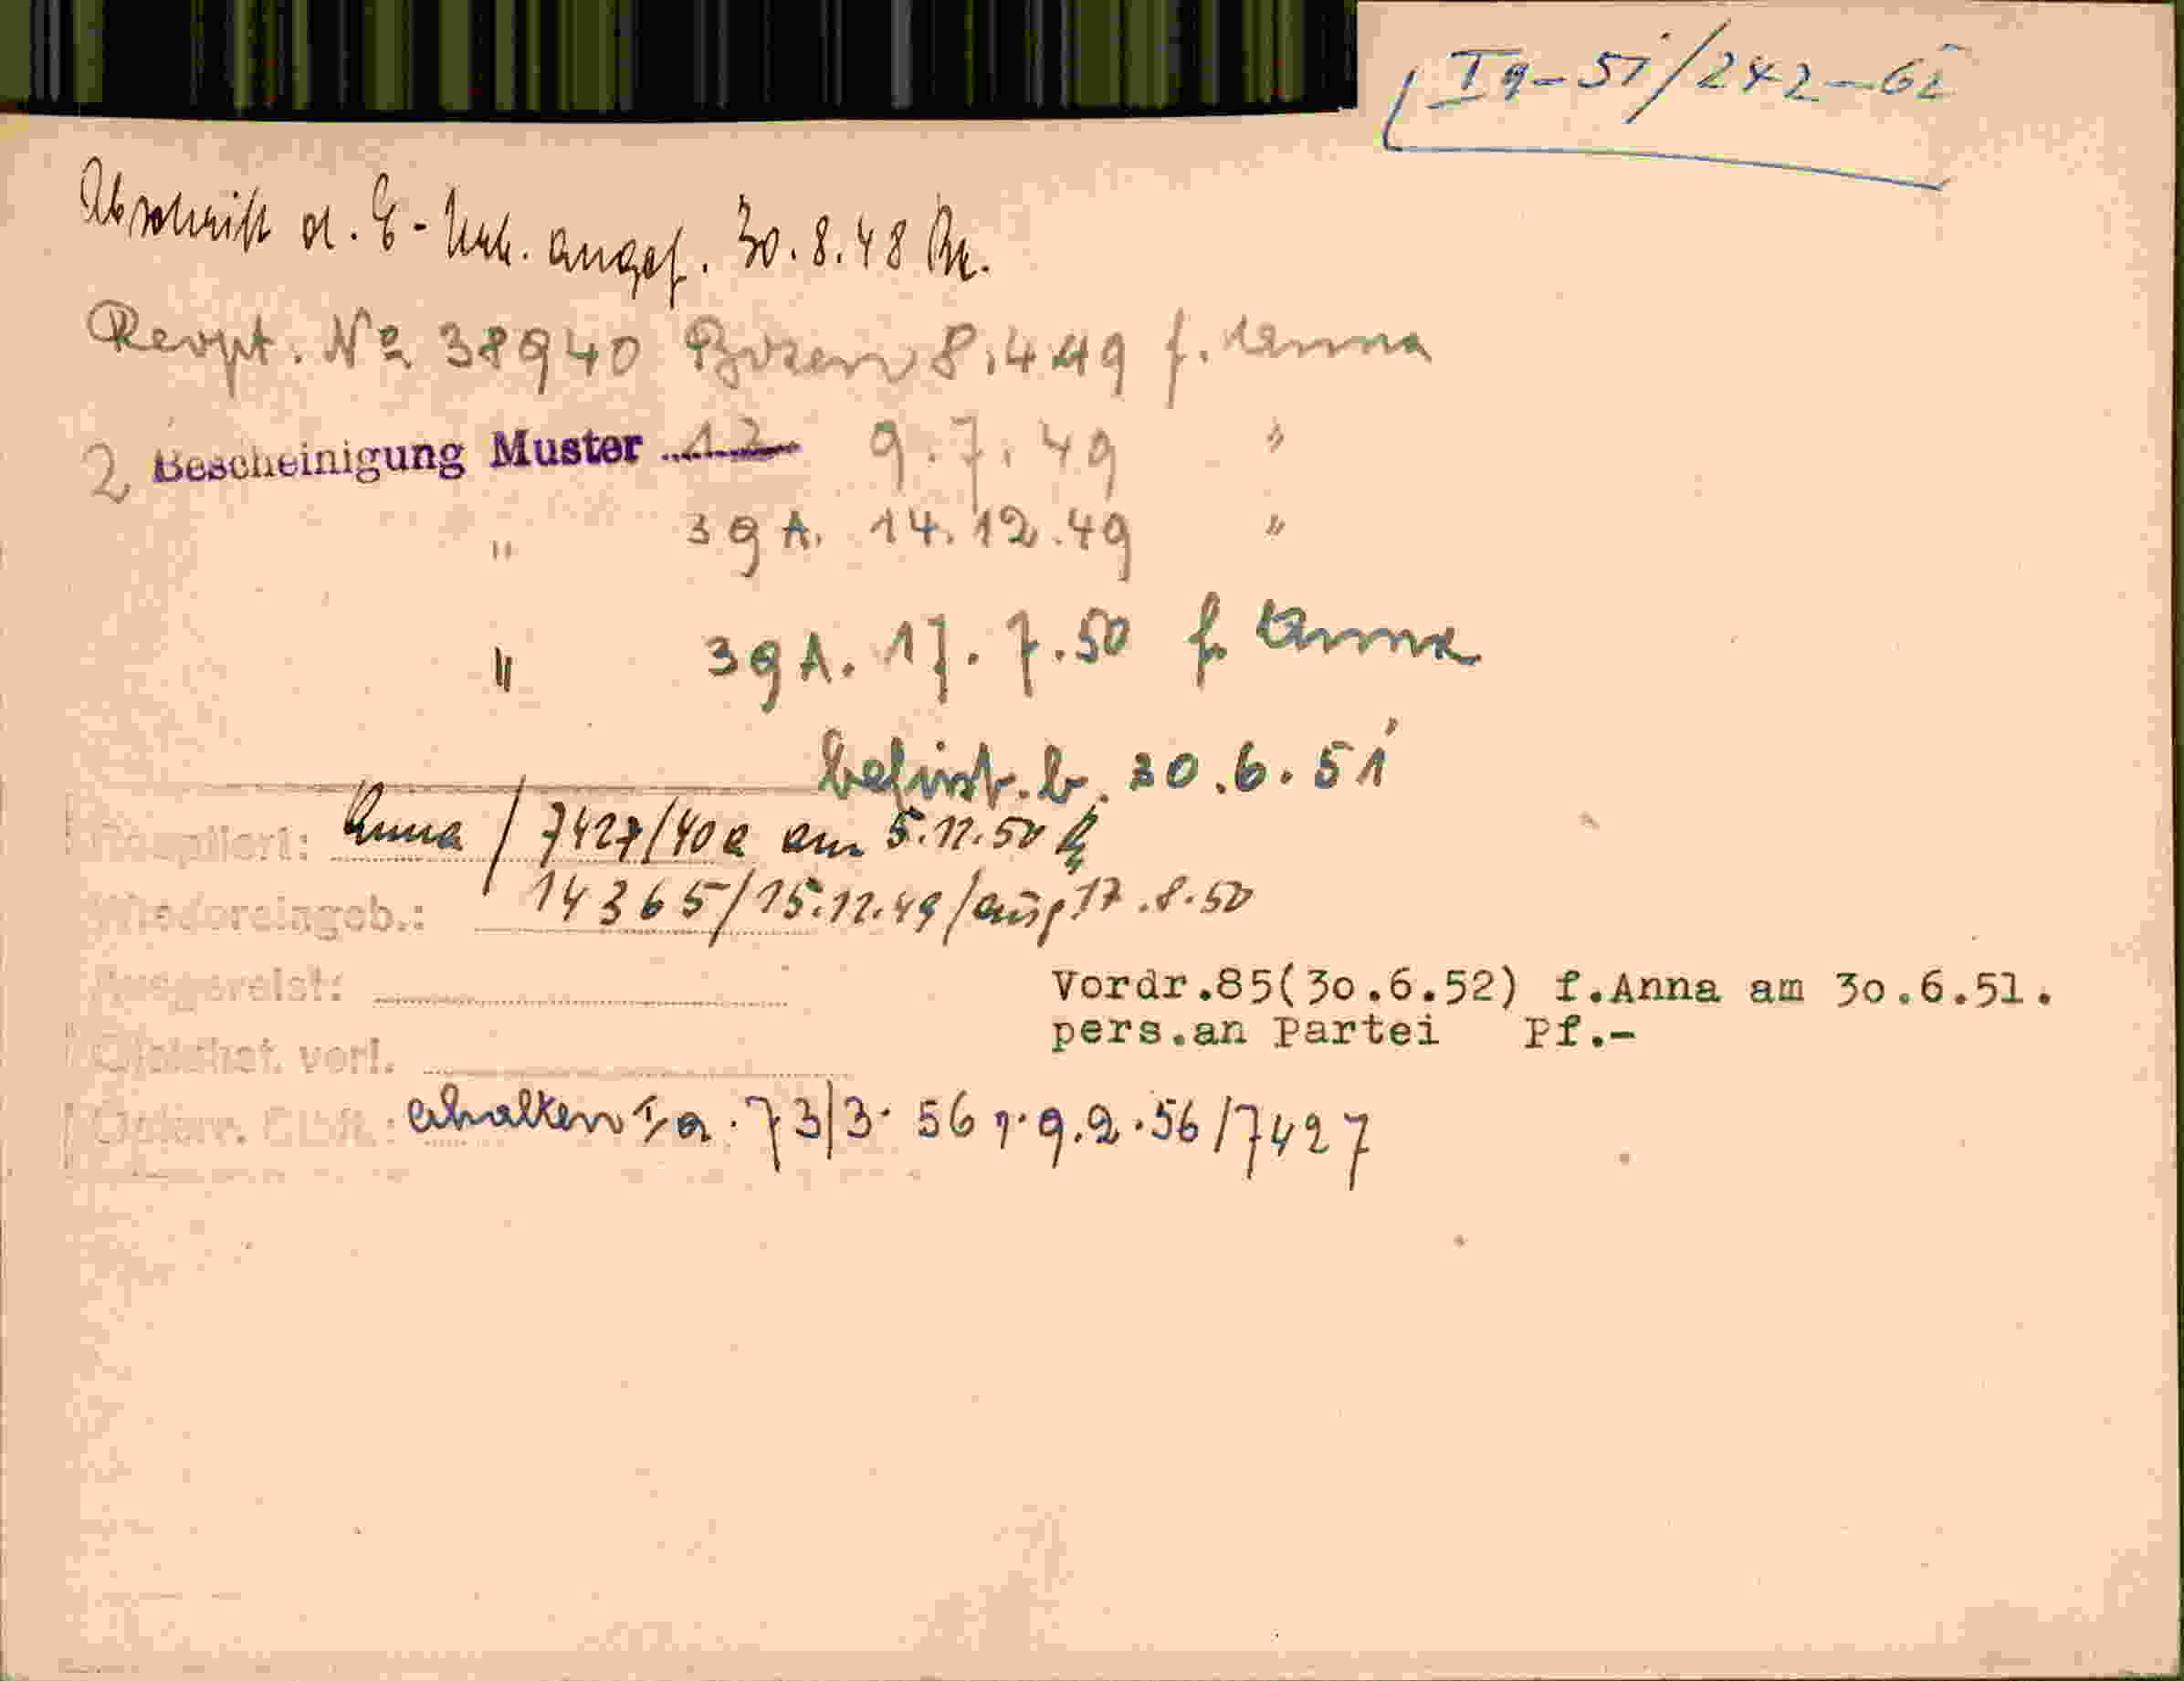 Ig-51/242-62
Abschrift d. E-Urk. angef. 30.8.48
Rexpt. Nº 38940 Bozen 8.4.49 f. Anna
2 Bescheinigung Muster 12 9.7.49 "
" 39 A. 14.12.49 "
" 39 A. 17.7.50 f. Anna
befrist. b. 30.6.51
Anna / 7427/40a am 5.11.50
Wiedereingeb.: 14365/15.11.49/ausg 17.8.50
Ausgereist:
Vordr.85(30.6.52) f.Anna am 30.6.51.
pers.an Partei Pf.-
vorl.
erhalten I/a. 73/3. 56 v. 9.2.56/7427